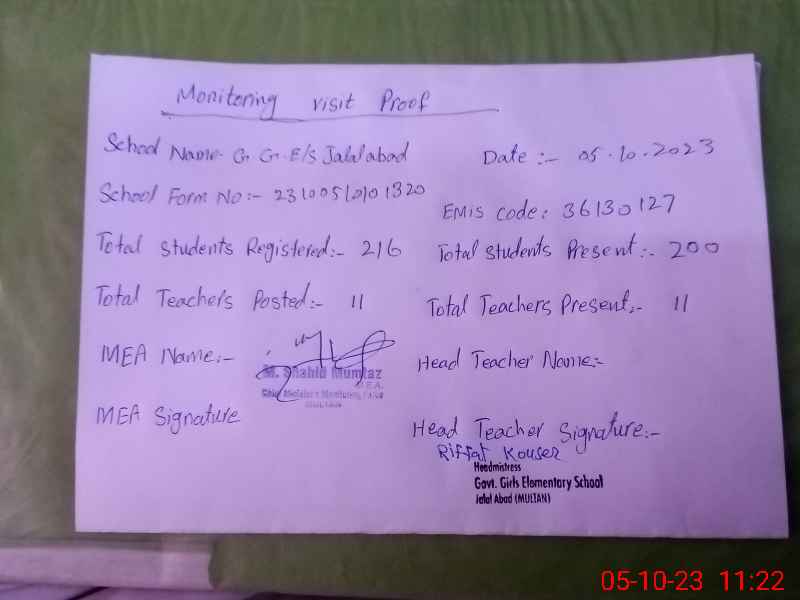 Monitoring visit Proof
School Name- G. G. E/S Jalalabad
Date :- 05.10.2023
School Form No:- 231005120101320
EMis code: 36130127
Total students Registered:- 216
Total students Present:- 200
Total Teachers Posted:- 11
Total Teachers Present:- 11
MEA Name:-
M. Shahid Mumtaz
M.E.A.
Chief Minister's Monitoring Force
Head Teacher Name:-
MEA Signature
Head Teacher Signature:-
Riffat Kouser
Headmistress
Govt. Girls Elementary School
Jalal Abad (MULTAN)
05-10-23 11:22